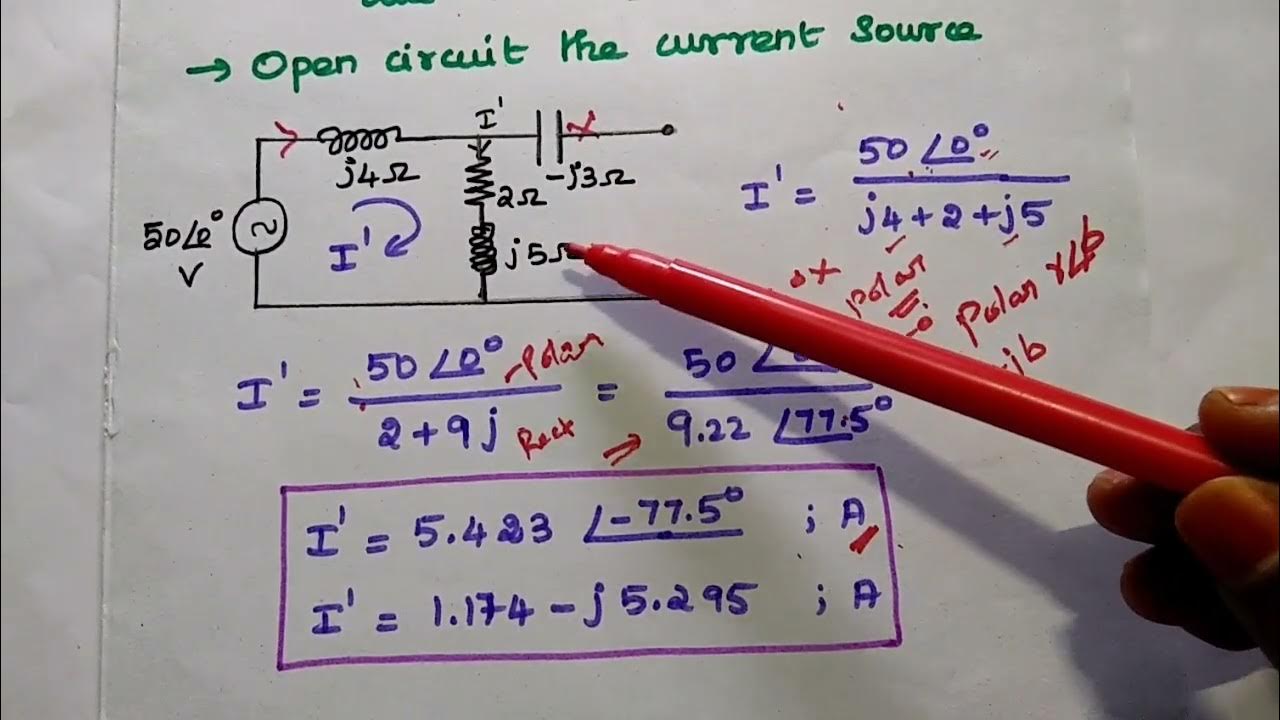 → Open circuit the current source
I'
j4Ω
2Ω
-j3Ω
50∠0°
V
I'
j5Ω
I' = 50∠0° / j4+2+j5
polar
polar r∠ϕ
jb
I' = 50∠0° / 2+9j = 50∠ / 9.22∠77.5°
polar
Rect
I' = 5.423 ∠-77.5° ; A
I' = 1.174 - j 5.295 ; A